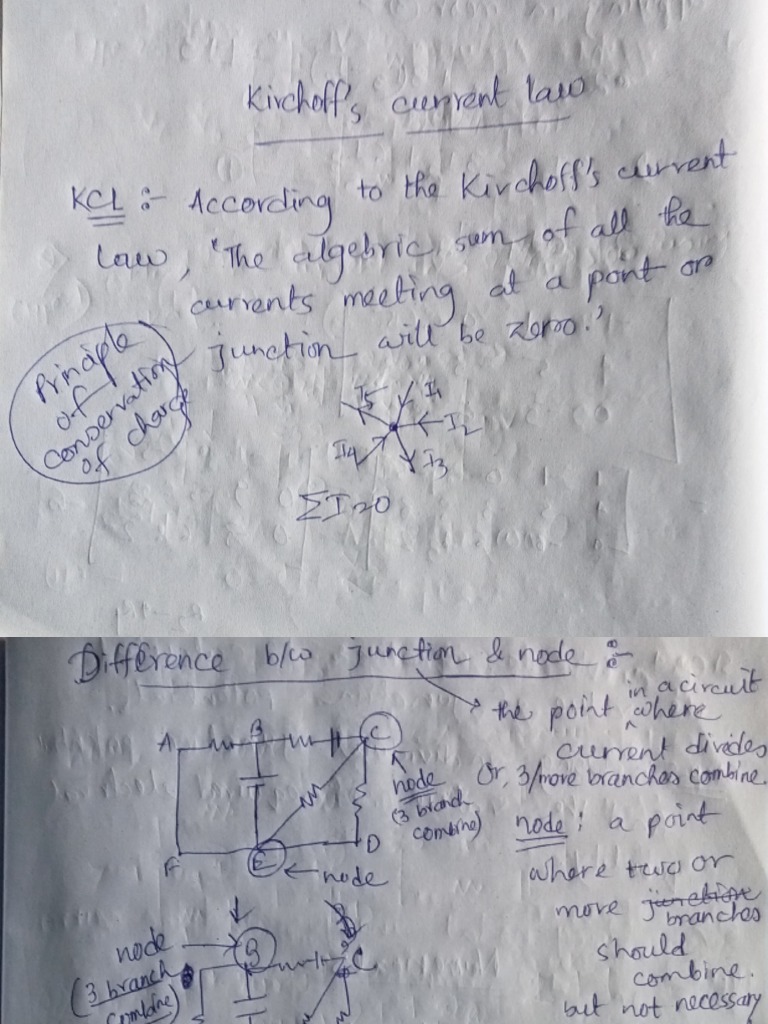 Kirchoff's current law
KCL :- According to the Kirchoff's current
law, "The algebric sum of all the
currents meeting at a pont or
junction will be zero."
Principle
of
conservation
of charge
I5 I1
I2
I4 I3
ΣI=0
Difference b/w junction & node :-
in a circuit
the point where
current divides
Or, 3/more branches combine.
A B C
node
(3 branch
combine)
F E D
node
node : a point
where two or
more junction
branches
should
combine.
but not necessary
node
(3 branch
combine)
B C